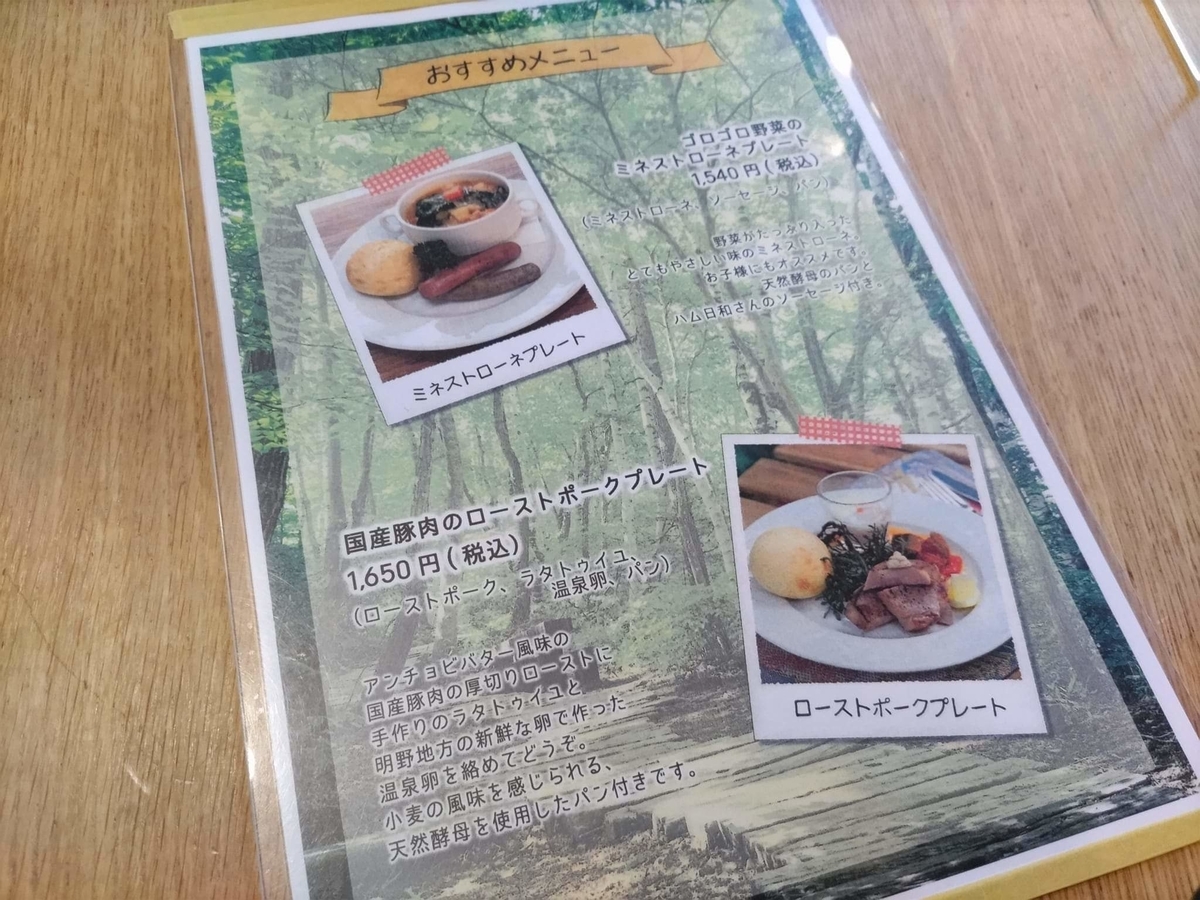 おすすめメニュー
ゴロゴロ野菜の
ミネストローネプレート
1,540円(税込)
(ミネストローネ、ソーセージ、パン)
野菜がたっぷり入った
とてもやさしい味のミネストローネ。
お子様にもオススメです。
天然酵母のパンと
ハム日和さんのソーセージ付き。
ミネストローネプレート
国産豚肉のローストポークプレート
1,650円(税込)
(ローストポーク、ラタトゥイユ、
温泉卵、パン)
アンチョビバター風味の
国産豚肉の厚切りローストに
手作りのラタトゥイユと
明野地方の新鮮な卵で作った
温泉卵を絡めてどうぞ。
小麦の風味を感じられる、
天然酵母を使用したパン付きです。
ローストポークプレート